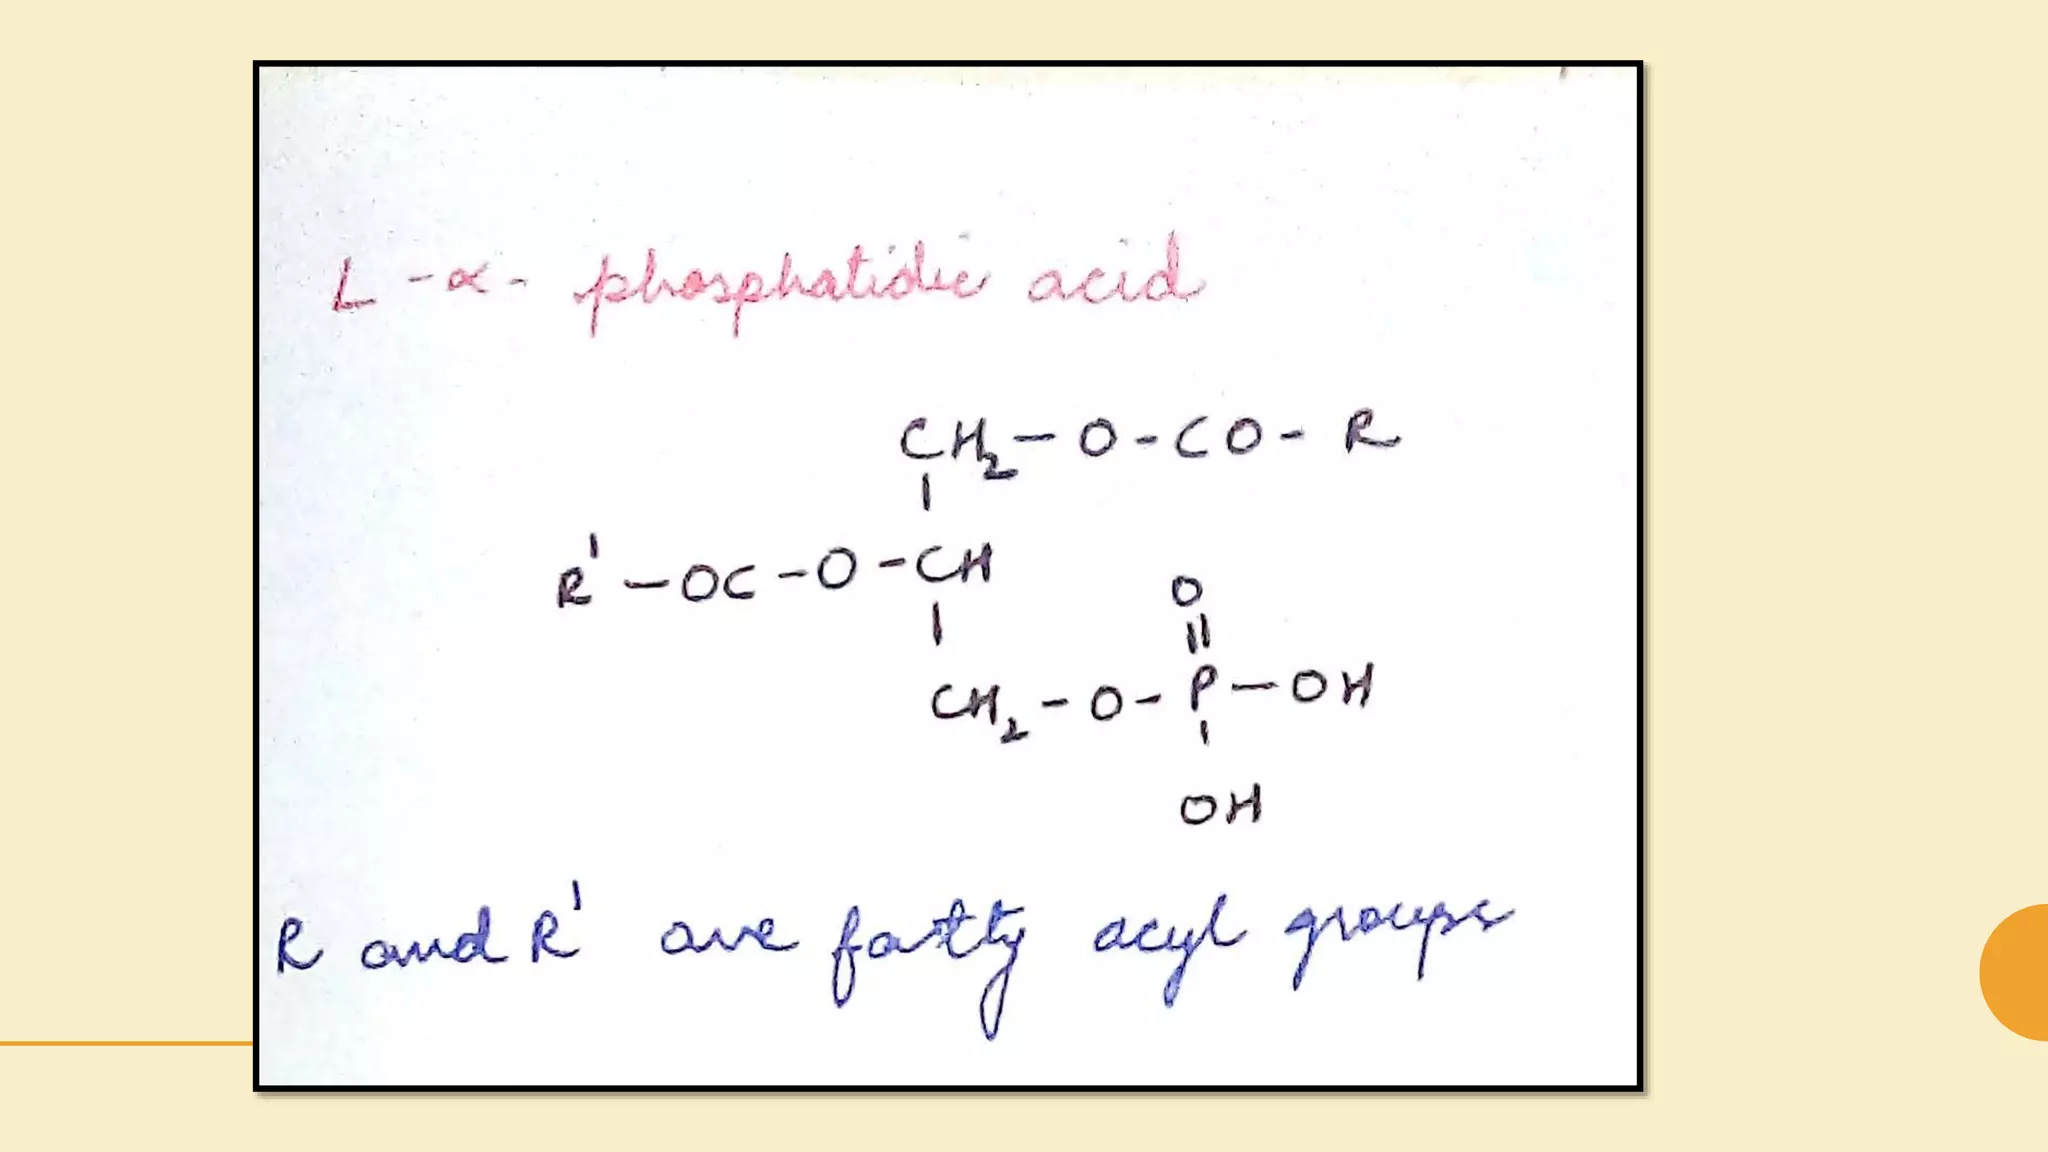 L - α - phosphatidic acid
CH₂ - O - CO - R
R' - OC - O - CH
O
CH₂ - O - P - OH
OH
R and R' are fatty acyl groups